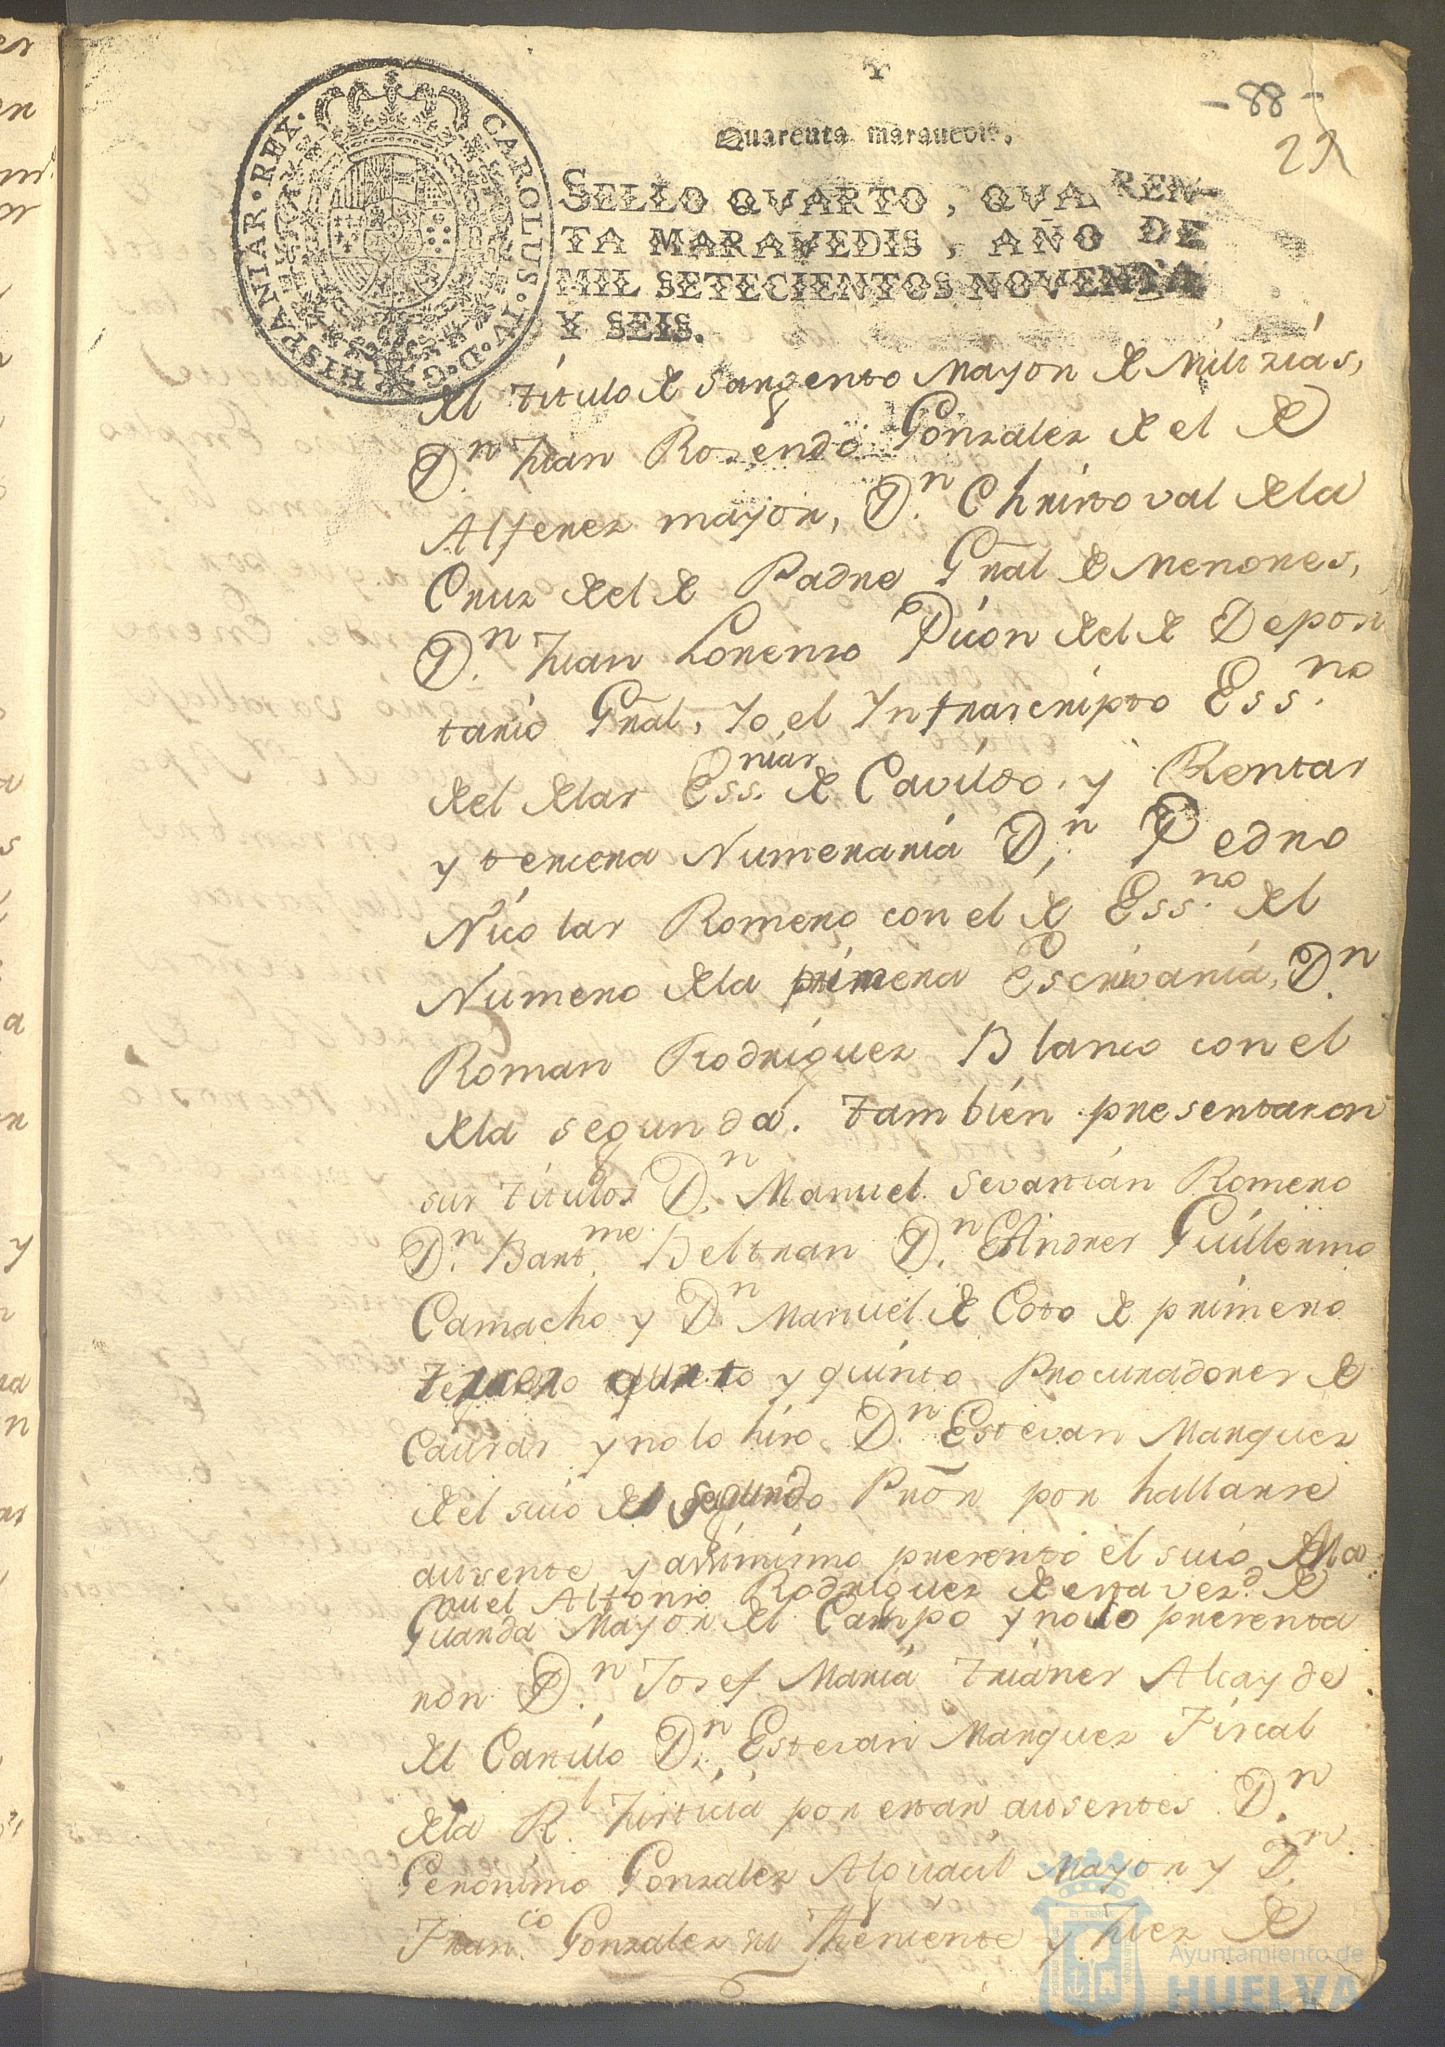 -88-
Quarenta maravedis.
SELLO QVARTO, QVAREN-
TA MARAVEDIS, AÑO DE
MIL SETECIENTOS NOVENTA
Y SEIS.
CAROLUS·IV·D·G·HISPANIAR·REX·
del titulo de Sargento Mayor de Milizias,
Dn. Juan Rosendo Gonzalez del de
Alferez mayor, Dn. Christoval dela
Cruz del de Padre Gñal de Menores,
Dn. Juan Lorenzo Picon del de Deposi
tario Gñal, Yo el Infrascripto Essno.
del delas Essnias. de Cavildo, y Rentas
y tercera Numeraria Dn. Pedro
Nicolas Romero con el de Essno. del
Numero dela primera Escrivania, Dn.
Roman Rodriguez Blanco con el
dela segunda. Tambien presentaron
sus titulos Dn. Manuel Sevastian Romero
Dn. Bartme. Beltran Dn. Andres Guillermo
Camacho y Dn. Manuel de Coto de primero
tercero quarto y quinto Procuradores de
Causas y no lo hizo Dn. Estevan Marquez
del suio de segundo Prõr por hallarse
ausente y assimismo presentó el suio Ma
nuel Alfonso Rodriguez de esta vezd. de
Guarda Mayor del Campo y no lo presenta
ron Dn. Josef Maria Trianes Alcayde
del Castillo Dn. Estevan Marquez Fiscal
dela Rl. Justicia por estar ausentes Dn.
Geronimo Gonzalez Alguacil Mayor y Dn.
Franco. Gonzalez su Theniente y Juez de
Ayuntamiento de
HUELVA